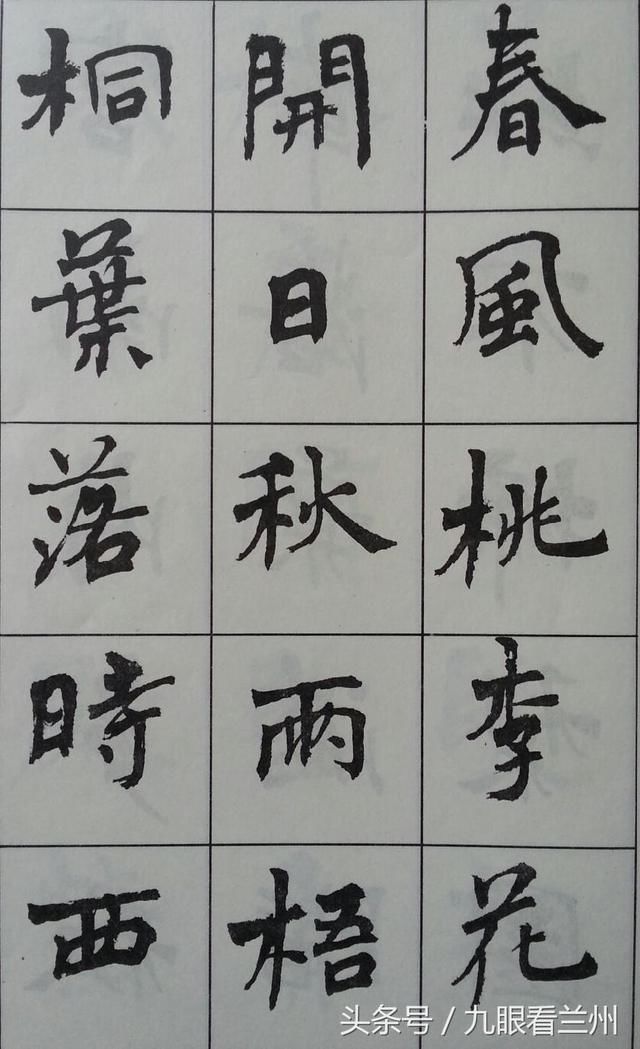 春風桃李花
開日秋雨梧
桐葉落時西
头条号 / 九眼看兰州